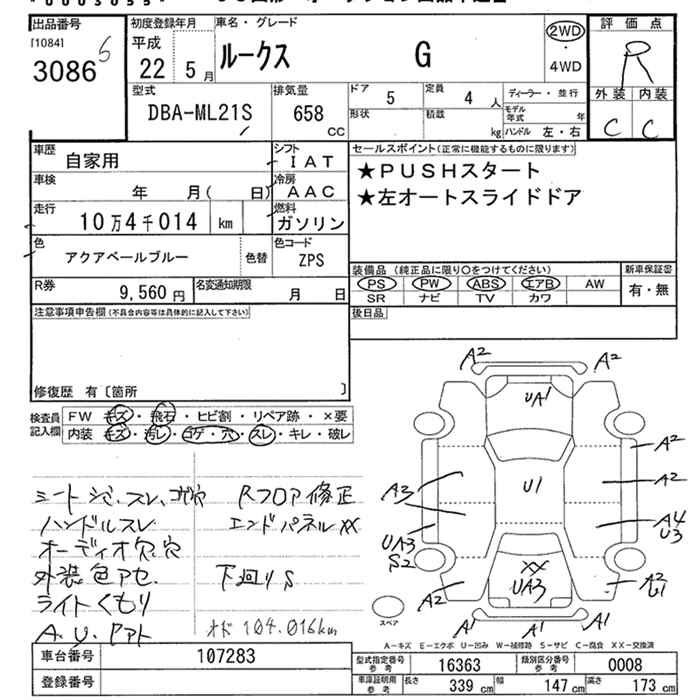 出品番号
[1084]
3086 5
初度登録年月
平成
22年 5月
車名・グレード
ルークス G
2WD
・
4WD
評価点
R
外装 内装
C C
型式
DBA-ML21S
排気量
658 CC
ドア 5
定員 4 人
形状
積載 kg
ディーラー・並行
モデル年式 年
ハンドル 左・右
車歴 自家用
シフト IAT
車検 年 月( 日)
冷房 AAC
走行 10万4千014 km
燃料 ガソリン
色 アクアペールブルー
色替
色コード ZPS
R券 9,560円
名変通知期限 月 日
セールスポイント(正常に機能するものに限ります)
★PUSHスタート
★左オートスライドドア
装備品 (純正品に限り○をつけてください)
PS PW ABS エアB AW
SR ナビ TV カワ
新車保証書
有・無
後日品
注意事項申告欄(不具合内容等は具体的に記入して下さい)
修復歴 有〔箇所 〕
検査員記入欄
FW キズ・飛石・ヒビ割・リペア跡・×要
内装 キズ・汚レ・コゲ・穴・スレ・キレ・破レ
シート シミ、スレ、コゲ穴
ハンドルスレ
オーディオ欠、穴
外装色アセ.
ライトくもり
A.U.アト
Rフロア修正
エンドパネルXX
下廻りS
オド 104.016km
A2 A2
UA1
A2
A3 U1 A2
A4
U3
UA3
S2
XX
UA3
A2
A1 A1
スペア
A-キズ E-エクボ U-凹み W-補修跡 S-サビ C-腐食 XX-交換済
車台番号 107283
登録番号
型式指定番号参考 16363
類別区分番号参考 0008
車庫証明用参考
長さ 339 cm 幅 147 cm 高さ 173 cm